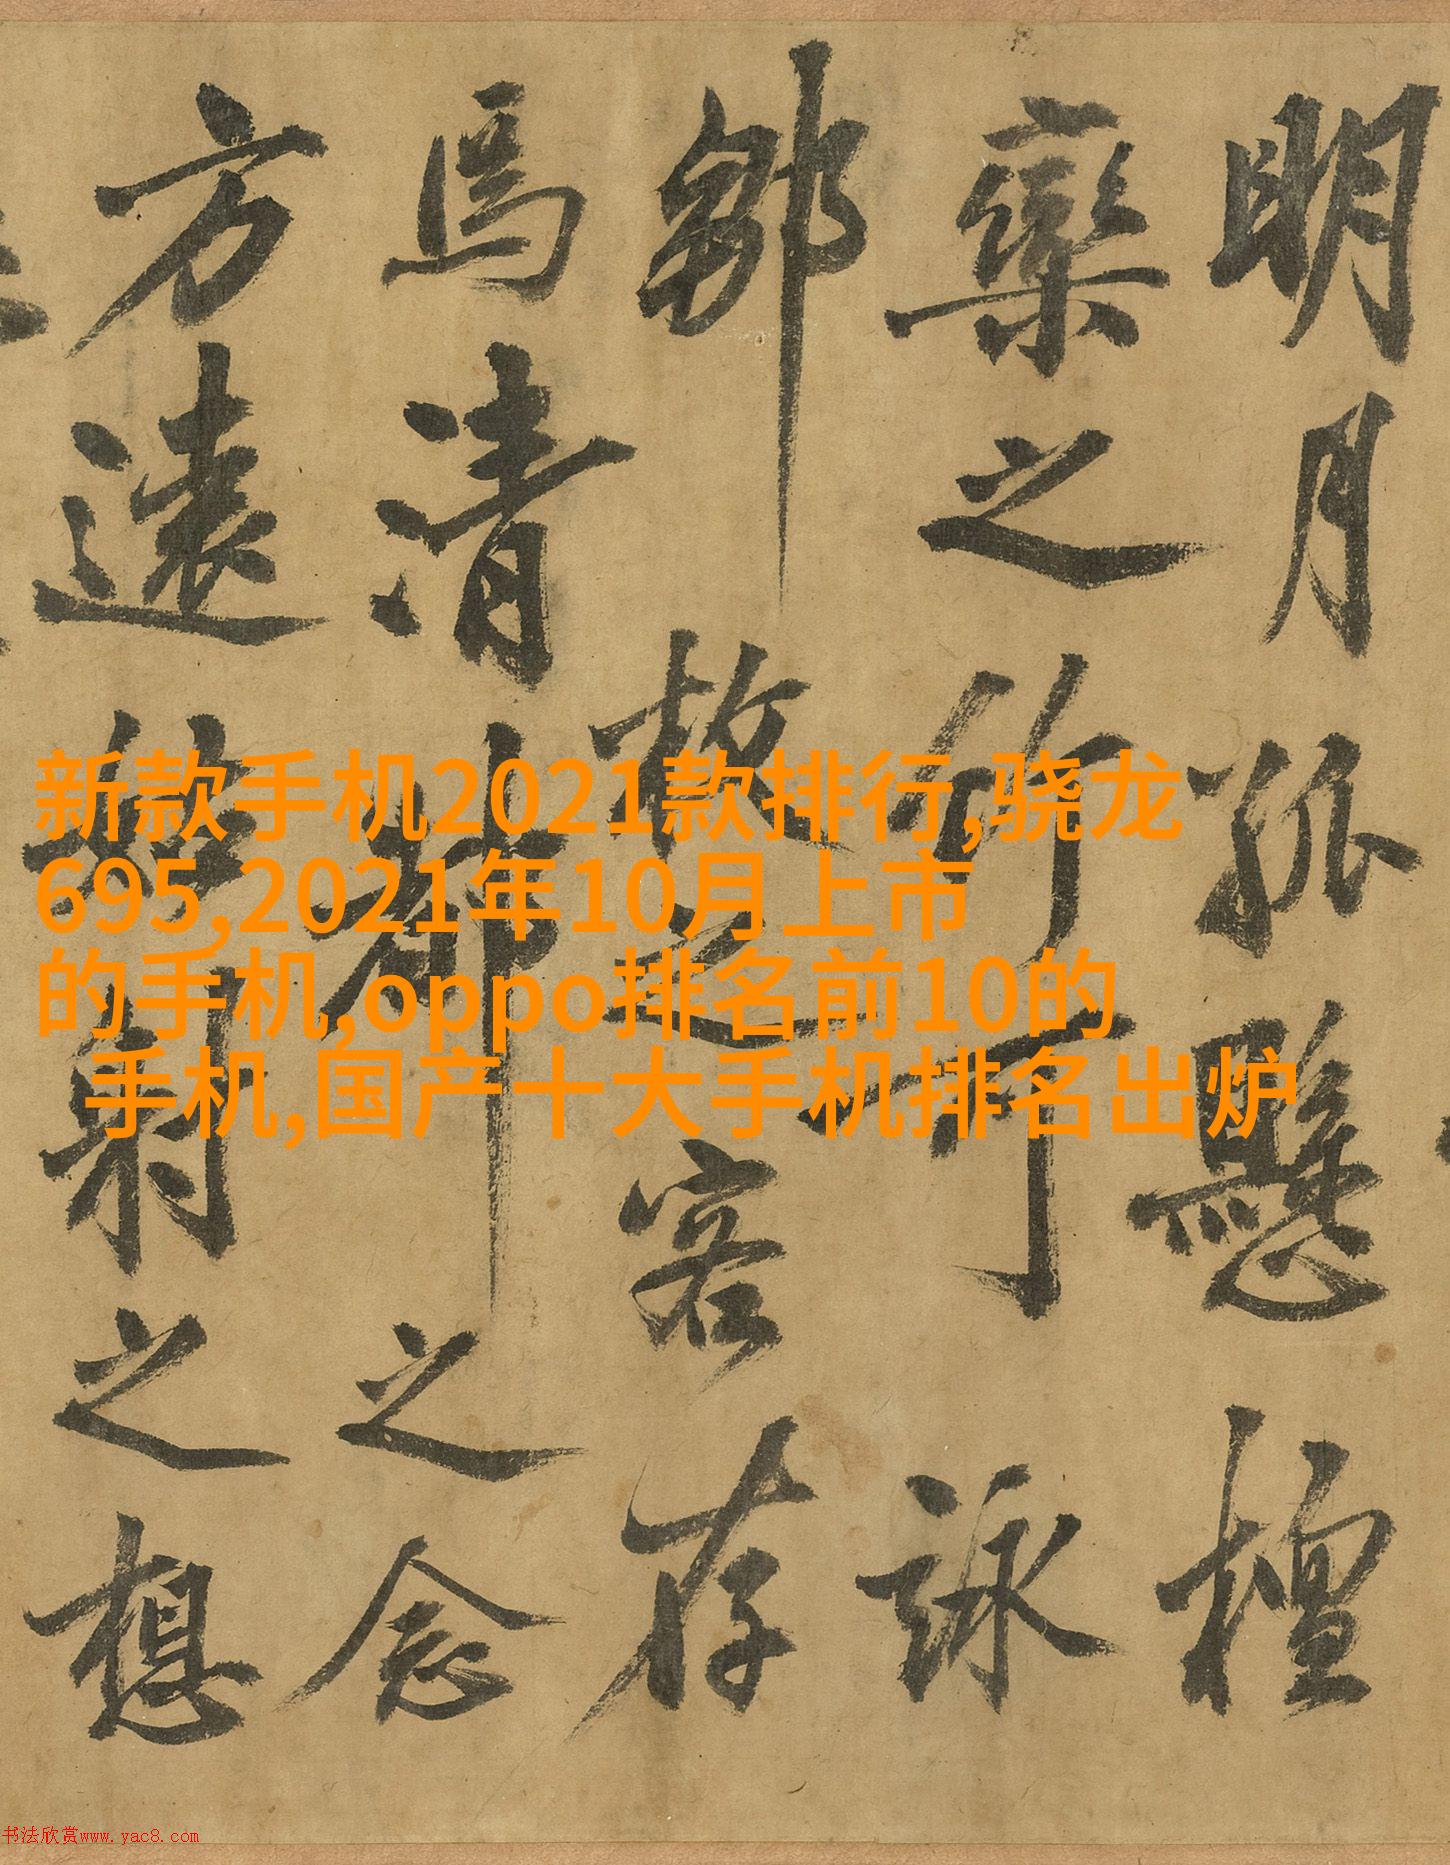 明月孤懸檀
欒之竹可詠
鄒枚之客存
焉清都之念
方遠姑射之想
新款手机2021款排行,骁龙
695,2021年10月上市
的手机,oppo排名前10的
手机,国产十大手机排名出炉
书法欣赏www.yac8.com